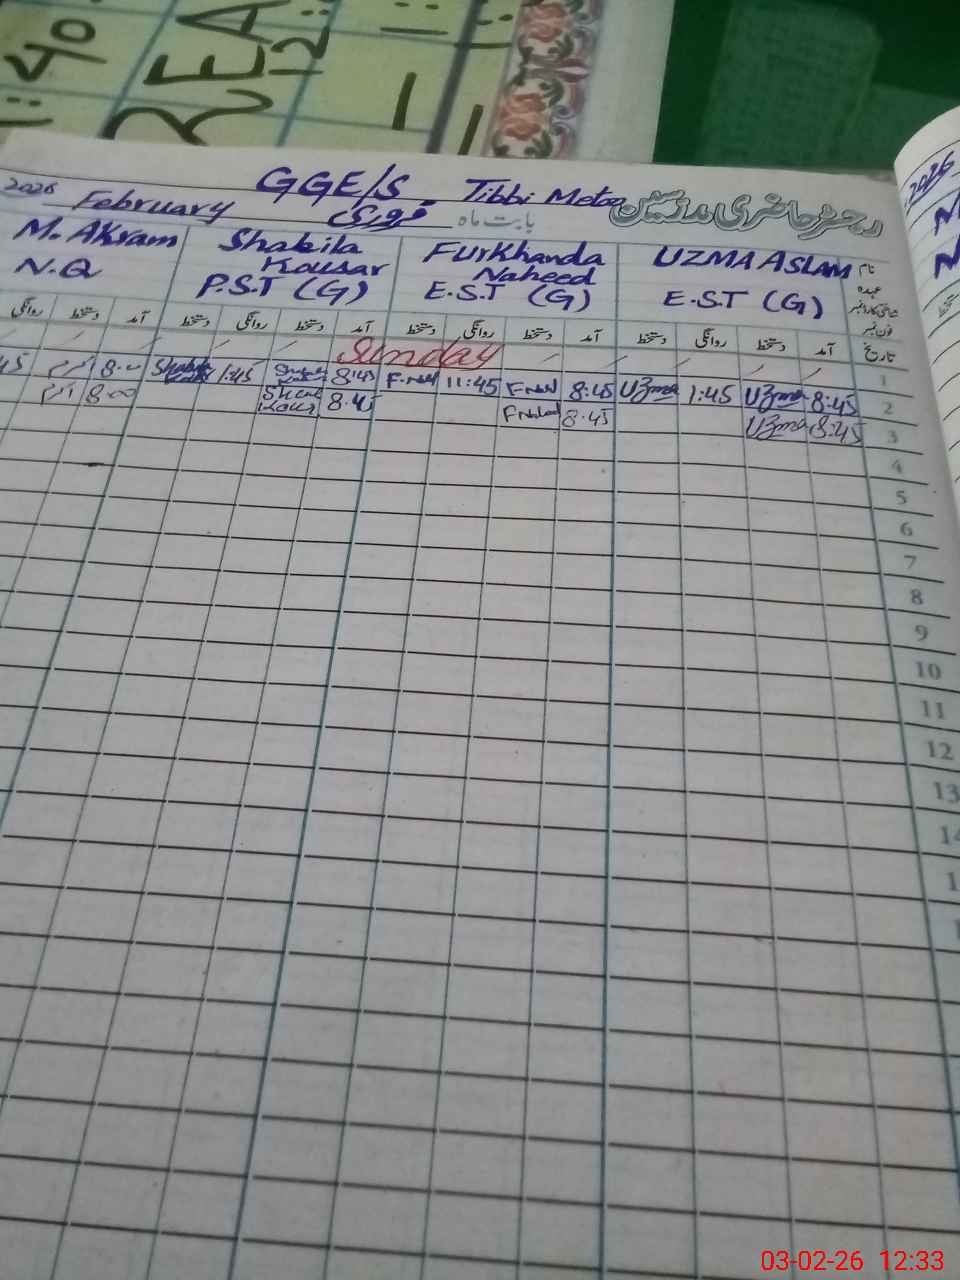 1:40
REA
12:
2026 February GGE/S. Tibbi Motoo
فروری بابت ماہ رجسٹر حاضری مدرسین
M. Akram Shabila Kousar Furkhanda Naheed UZMA ASLAM نام
N.Q P.S.T (G) E.S.T (G) E.S.T (G) عہدہ
شناختی کارڈ نمبر
فون نمبر
روانگی دستخط آمد دستخط روانگی دستخط آمد دستخط روانگی دستخط آمد دستخط روانگی دستخط آمد تاریخ
Sunday 1
45 اکرم 8:00 1:45 8:45 11:45 8:45 Uzma 1:45 Uzma 8:45 2
اکرم 8:00 8:45 8:45 Uzma 8:45 3
4
5
6
7
8
9
10
11
12
13
14
2026
03-02-26 12:33